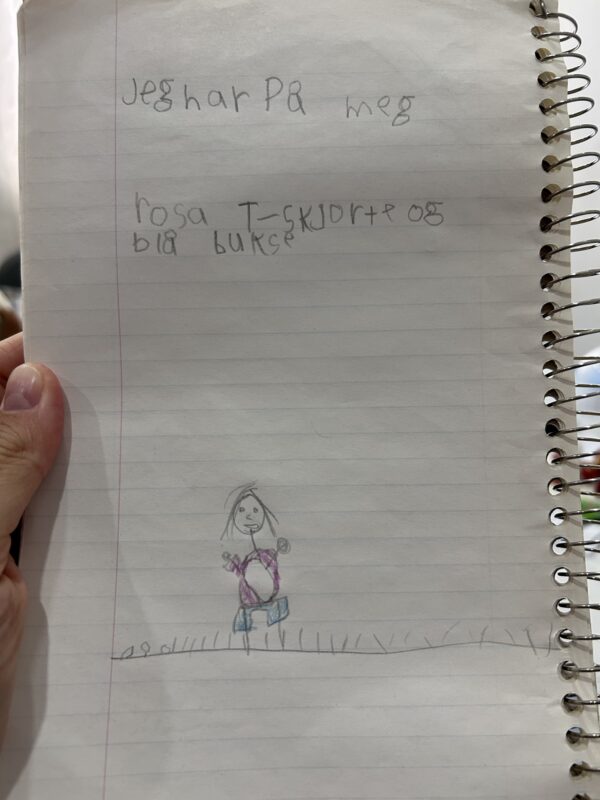 Jeg har På meg
rosa T-skjorte og
blå bukse